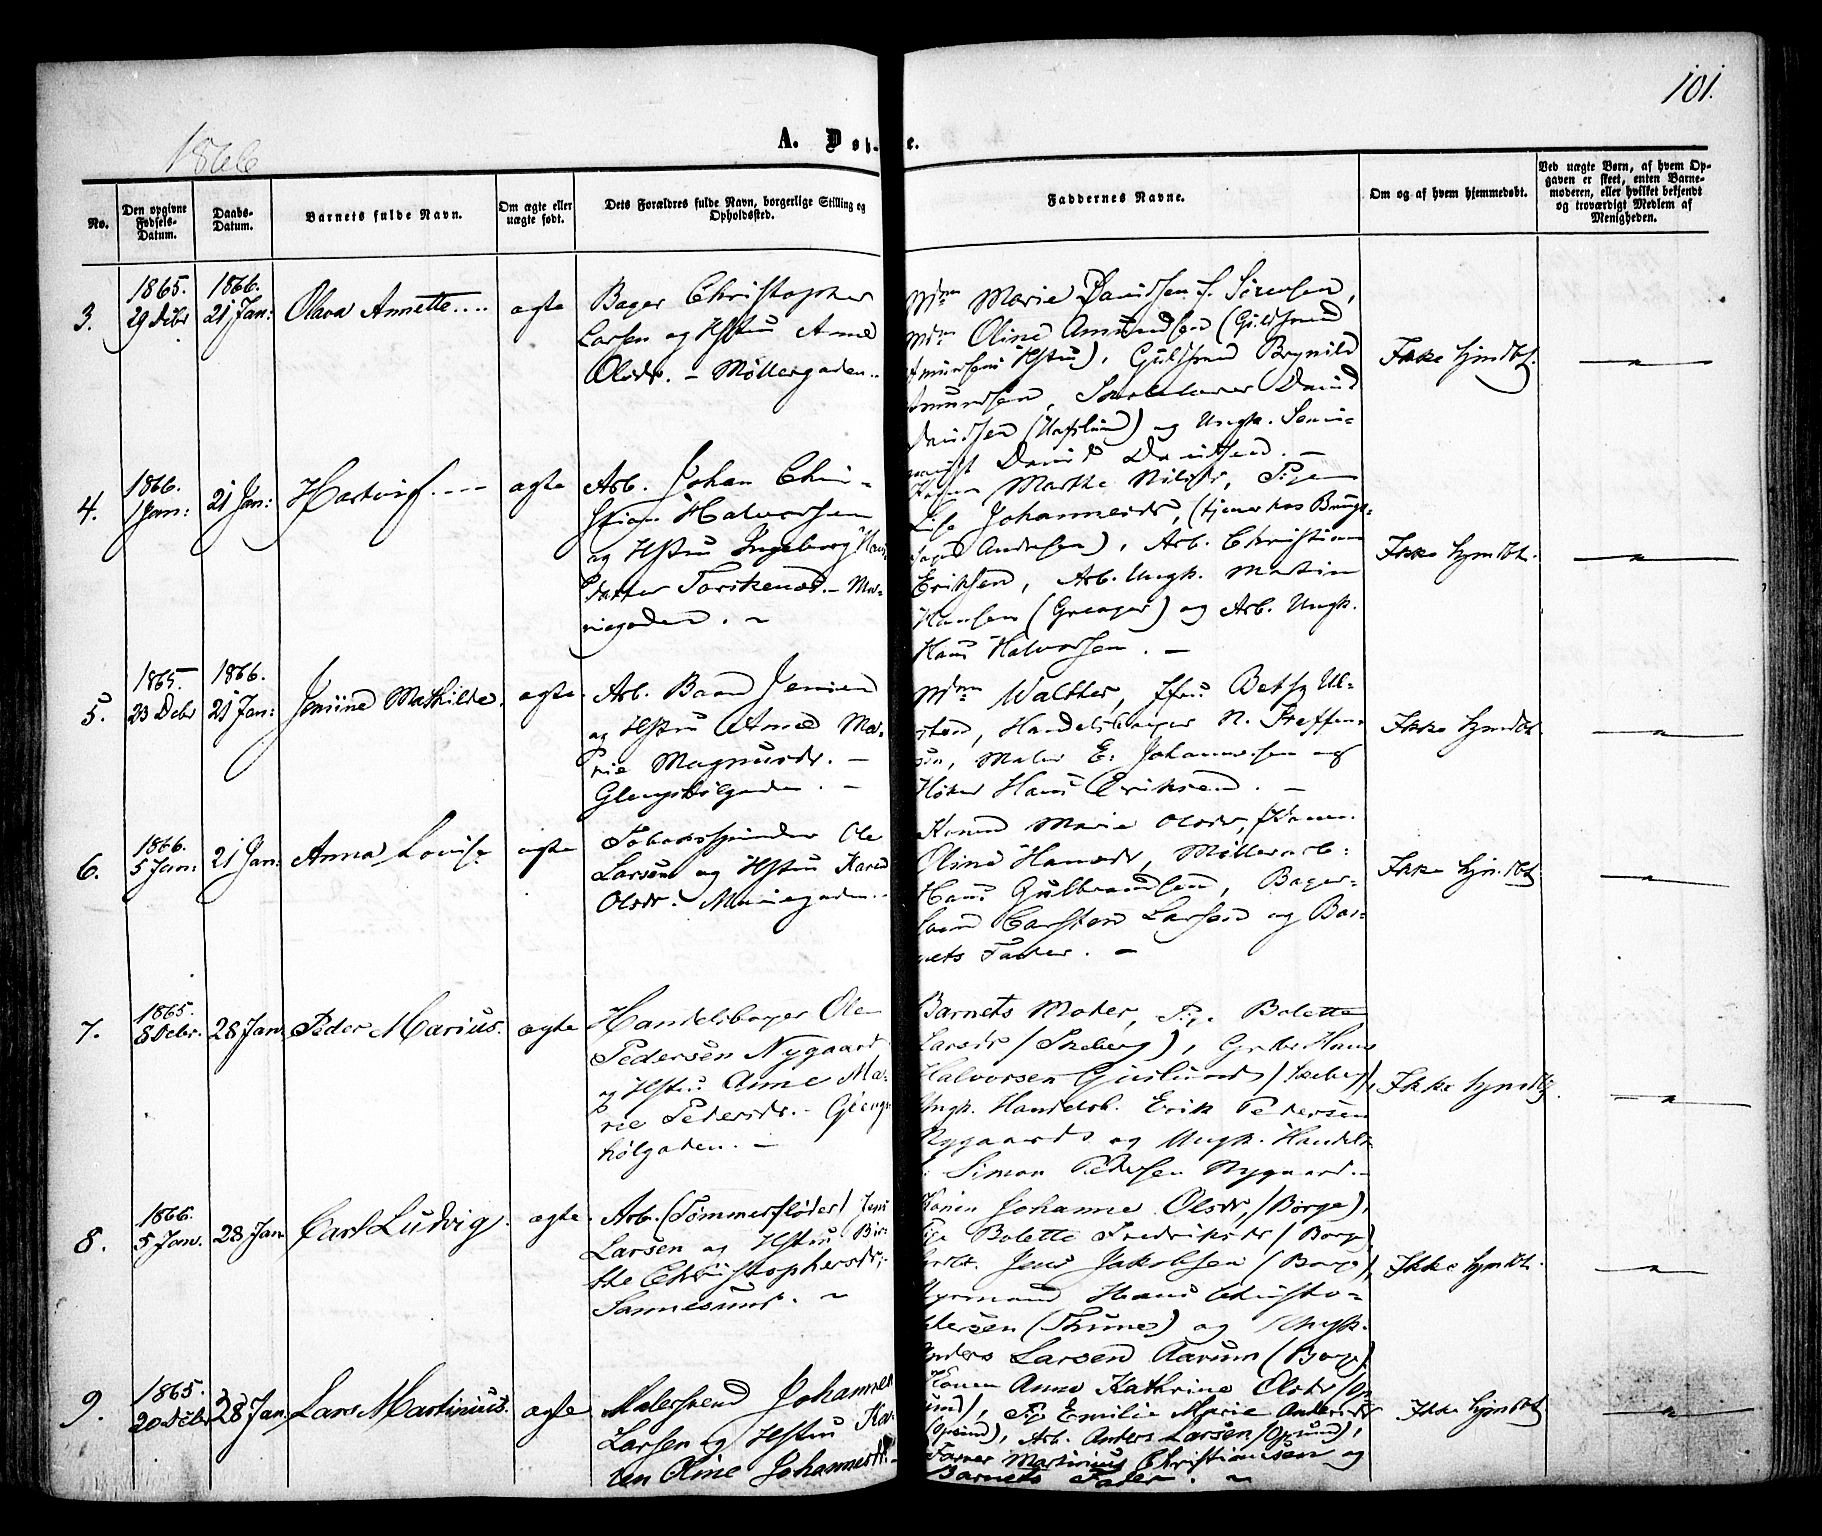 101.
1866
A. Døbte.
No.
Den opgivne Fødsels-Datum.
Daabs-Datum.
Barnets fulde Navn.
Om ægte eller uægte født.
Dets Forældres fulde Navn, borgerlige Stilling og Opholdssted.
Faddernes Navne.
Om og af hvem hjemmedøbt.
Ved uægte Børn, af hvem Opgaven er skeet, enten Barnemoderen, eller hvilket bekjendt og troværdigt Medlem af Menigheden.
3.
1865.
29 Decbr
1866.
21 Jan:
Olava Annette....
ægte
Bager Christopher
Larsen og Hstru Anne
Olsdr. – Møllergaden..
Mdm Marie Davidsen f. Sørensen,
Mdm Oline Amundsen (Guldsmed
Hstru), Guldsmed Brynild
David
og Ungk. Semi-
David Davidsen. –
Ikke hjmdbt.
4.
1866.
1 Jan:
21 Jan:
Hartvig. ----
ægte
Arb. Johan Chri-
stian Halvorsen
og Hstru Ingeborg
datter Torskenæs. – Ma-
riegaden. ~
Konen Marthe Nilsdr, Pige
Lise Johannesdr, (tjener hos
Andresen), Arb. Christian
Eriksen, Arb. Ungk. Martin
Hansen (Greager) og Arb. Ungk.
Hans Halvorsen. –
Ikke hjmdbt.
5.
1865.
23 Debr
1866.
21 Jan:
Jensine Mathilde
ægte.
Arb. Bernt Jensen
og Hstru Anne Ma-
rie Magnusdr. –
Glengshølgaden. –
Mdm Walther, Jfru Betsy Ul-
sten, Handelsborger N. Steffen-
sen, Maler E. Johannesen og
Høker Hans Eriksen. –
Ikke hjmdbt.
6.
1866.
5 Jan:
21 Jan:
Anna Lovise
ægte
Tobaksspinder Ole
Larsen og Hstru Karen
Olsdr. Mariegaden..
Konen Marie Olsdr, Konen
Oline Hansdr, Møllerarb:
Hans Gulbrandsen, Bager-
svend Carsten Larsen og Bar-
nets Fader. –
Ikke hjmdbt.
7.
1865.
8 Debr.
28 Jan
Peder Marius.
ægte
Handelsborger Ole
Pedersen Nygaard
og Hstru Anne Ma-
rie Pedersdr. – Glengs-
hølgaden. –
Barnets Moder, Pi. Bolette
Larsdr (Skeberg), Grdbr Hans
Halvorsen Gulund (Skeberg),
Ungk. Handelsb. Erik Pedersen
Nygaard og Ungk. Handels-
b. Simon Pedersen Nygaard. –
Ikke hjmdbt.
8.
1866.
5 Jan.
28 Jan
Carl Ludvig.
ægte
Arb. (Tømmerfløder) Jens
Larsen og Hstru Bir-
the Christophersdr,
Sannesund. ~
Konen Johanne Olsdr, (Borge),
Pige Bolette Fredriksdr (Borge)
Grdbr. Jens Jakobsen (Borge),
Styrmand Hans Christo-
phersen (Thune) og Ungk.
Anders Larsen Aarum (Borge).
Ikke hjmdbt.
9.
1865.
20 Debr
28 Jan.
Lars Martinius.
ægte
Malersvend Johannes
Larsen og Hstru Ka-
ren Oline Johannesdr. –
Konen Anne Kathrine Olsdr (Op-
sund), Pig Emilie Marie Andersdr
(Opsund), Arb. Anders Larsen (Opsund),
Farver Martinius Christiansen og
Barnets Fader. ~
Ikke hjmdbt